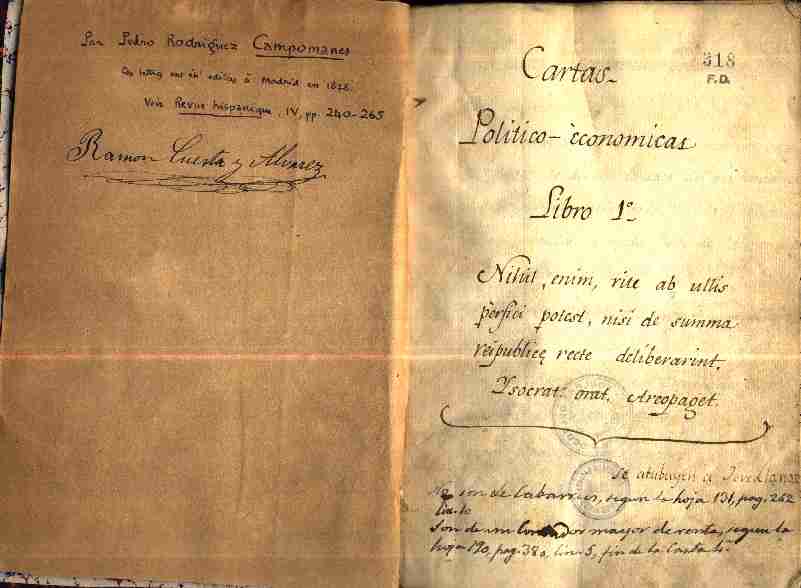 Par Pedro Rodríguez Campomanes
Ces lettres ont été éditées à Madrid en 1878.
Voir Revue hispanique, IV, pp. 240-265
Ramon Cuesta y Alvarez
Cartas
318
F.D.
Politico-èconomicas
Libro 1º
Nihil, enim, rite ab ullis
pèrfici potest, nisi de summa
reipublicę recte deliberarint.
Ysocrat. orat. Areopaget.
Se atribuyen a Jovellanos
No son de Cabarrus, segun la hoja 131, pag. 262
lin. 10
Son de un Contador mayor de renta, segun la
hoja 190, pag. 380, lin. 5, fin de la Carta